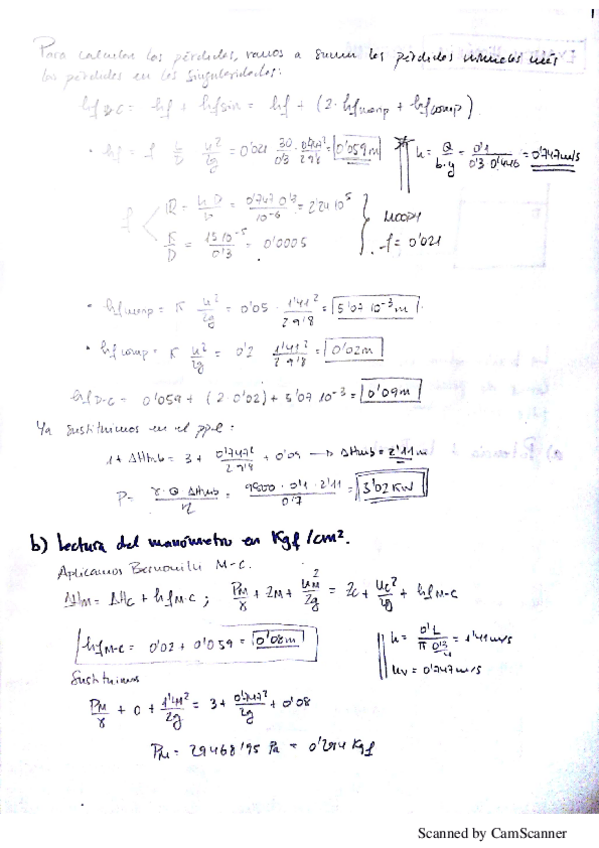 1
Para calcular las pérdidas, vamos a sumar las pérdidas lineales más
las pérdidas en las singularidades:
hf B-C = hf + hf sin = hf + (2· hf + hf comp)
• hf = f L/D u²/2g = 0'021 30/0'3 · 0'747²/2 9'8 = 0'059 m
u = Q/b·y = 0'1/0'3 0'446 = 0'747 m/s
f
R = u D/ν = 0'747 0'3/10⁻⁶ = 2'24 10⁵
K/D = 15 10⁻⁵/0'3 = 0'0005
MOODY
f = 0'021
• hf = K u²/2g = 0'05 · 1'41²/2 9'8 = 5'07 10⁻³ m
• hf comp = K u²/2g = 0'2 1'41²/2 9'8 = 0'02 m
hf D-C = 0'059 + (2·0'02) + 5'07 10⁻³ = 0'09 m
Ya sustituimos en el ppal:
1 + ΔHmb = 3 + 0'747²/2 9'8 + 0'09 → ΔHmb = 2'11 m
P = γ·Q ΔHmb/η = 9800 · 0'1 · 2'11/0'7 = 3'02 KW
b) Lectura del manómetro en Kgf/cm².
Aplicamos Bernouilli M-C.
ΔHm = ΔHc + hf M-C ; PM/γ + ZM + uM²/2g = Zc + uc²/2g + hf M-C
hf M-C = 0'02 + 0'059 = 0'08 m
u = 0'1/π 0'3²/4 = 1'41 m/s
uv = 0'747 m/s
Sustituimos
PM/γ + 0 + 1'41²/2g = 3 + 0'747²/2g + 0'08
PM = 29468'95 Pa = 0'294 Kgf
Scanned by CamScanner